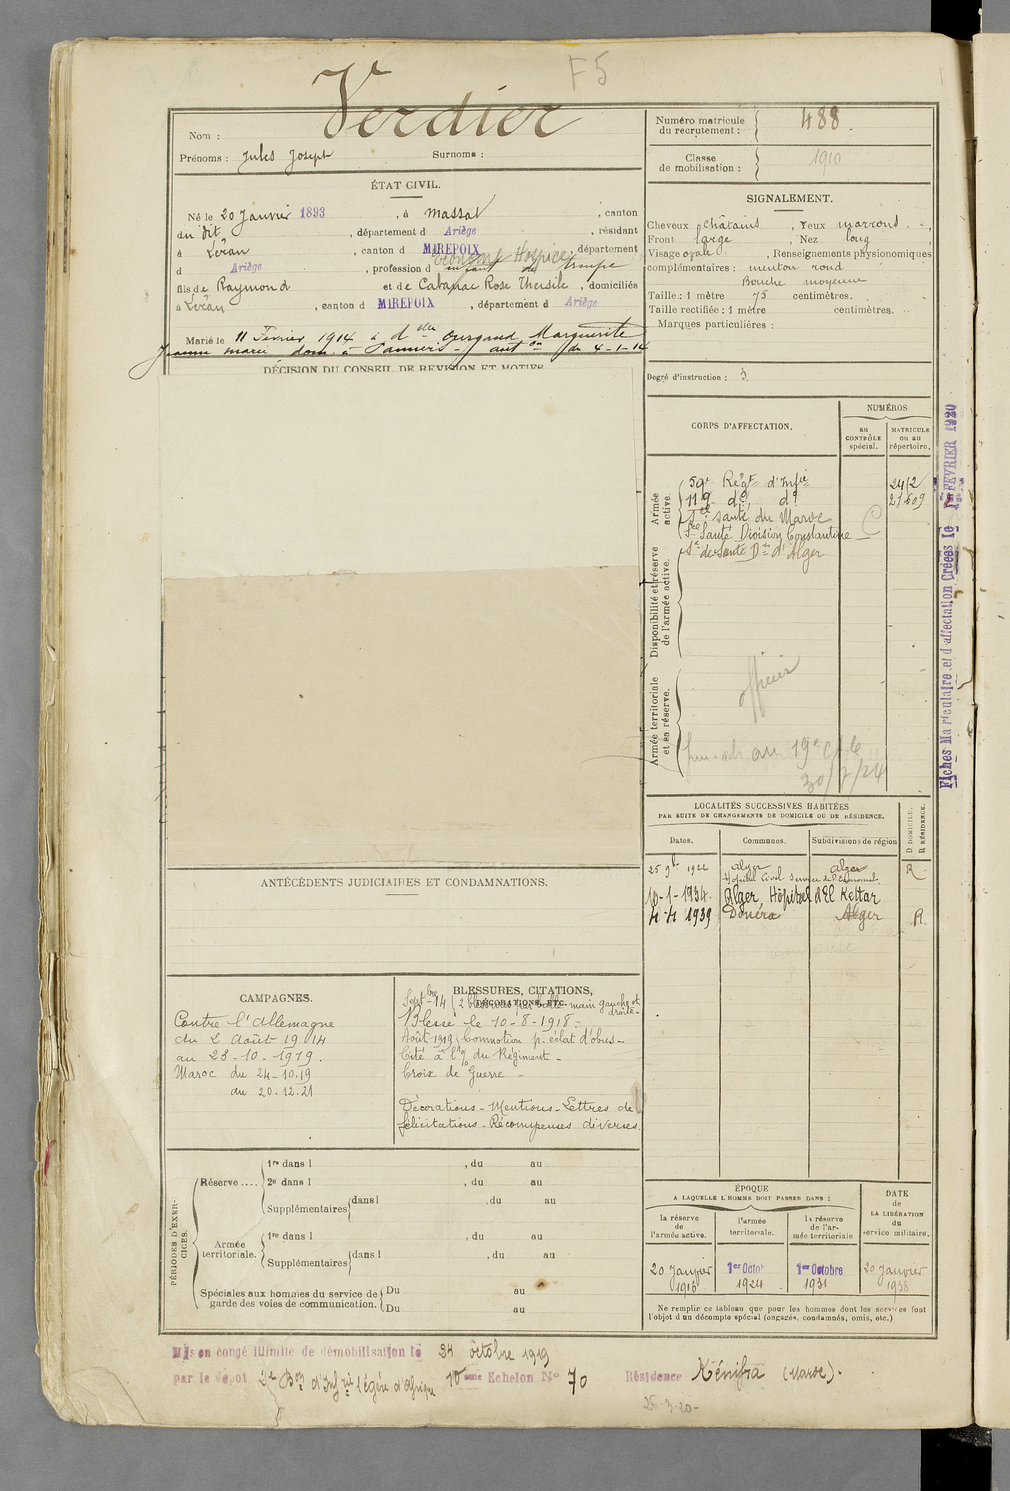 F5
Verdier
Nom :
Prénoms : Jules Joseph Surnoms :
ÉTAT CIVIL.
Né le 20 Janvier 1893, à Massat, canton
du dit, département d Ariège, résidant
à Léran, canton d MIREPOIX, département
Économe Hospice
d Ariège, profession d enfant de troupe
fils de Raymond et de Cabanac Rose Thersile, domiciliés
à Léran, canton d MIREPOIX, département d Ariège
Marié le 11 Février 1914 à dlle Ourgaud Marguerite
Jeanne Marie dom. à Pamiers - auton du 4-1-14
DÉCISION DU CONSEIL DE REVISION ET MOTIFS
ANTÉCÉDENTS JUDICIAIRES ET CONDAMNATIONS.
CAMPAGNES.
Contre l'Allemagne
du 2 Août 1914
au 23-10-1919.
Maroc du 24-10-19
au 20.12.21
BLESSURES, CITATIONS,
DÉCORATIONS, ETC.
Septbre 14 (2 blessures par balle main gauche et
droite-
Blessé le 10-8-1918-
Août 1919 (Commotion p. éclat d'obus-
Cité à l'o/ du Régiment-
Croix de Guerre-
Décorations-Mentions-Lettres de
félicitations-Récompenses diverses.
PÉRIODES D'EXERCICES.
Réserve ....
1re dans l , du au
2e dans l , du au
Supplémentaires dans l , du au
Armée territoriale.
1re dans l , du au
Supplémentaires dans l , du au
Spéciales aux hommes du service de garde des voies de communication.
Du au
Du au
Numéro matricule du recrutement : 488.
Classe de mobilisation : 1910
SIGNALEMENT.
Cheveux châtains, Yeux marrons
Front large, Nez long
Visage ovale, Renseignements physionomiques
complémentaires : menton rond
Bouche moyenne
Taille : 1 mètre 75 centimètres.
Taille rectifiée : 1 mètre centimètres.
Marques particulières :
Degré d'instruction : 3
CORPS D'AFFECTATION.
NUMÉROS
au CONTRÔLE spécial.
MATRICULE ou au répertoire.
Armée active.
59e Régt d'Infie 2412
119 do do 21509
Son santé du Maroc
Son Santé Division Constantine C
Sn de Santé Don d'Alger
Disponibilité et réserve de l'armée active.
officier
Armée territoriale et sa réserve.
au 19e
30/7/24
LOCALITÉS SUCCESSIVES HABITÉES
PAR SUITE DE CHANGEMENTS DE DOMICILE OU DE RÉSIDENCE.
Dates. Communes. Subdivisions de région D DOMICILE. R RÉSIDENCE.
25 9bre 1922 Alger Alger R.
Hôpital Civil Service de l'Économat
10-1-1934. Alger Hôpital d'El Kettar
4-4 1939 Douéra Alger R.
ÉPOQUE
A LAQUELLE L'HOMME DOIT PASSER DANS :
la réserve de l'armée active.
l'armée territoriale.
la réserve de l'armée territoriale
DATE de LA LIBÉRATION du service militaire.
20 Janvier 1915 1er Octob 1924 1er Octobre 1931 20 Janvier 1938
Ne remplir ce tableau que pour les hommes dont les services font
l'objet d'un décompte spécial (engagés, condamnés, omis, etc.)
Fiches Matriculaire et d'affectation Créées le 1er FÉVRIER 1920
Mis en congé illimité de démobilisation le 24 octobre 1919
par le dépôt 2e Bon d'Infrie légère d'Afrique 10eme Echelon N° 70 Résidence Kénifra (Maroc).
26-3-20-